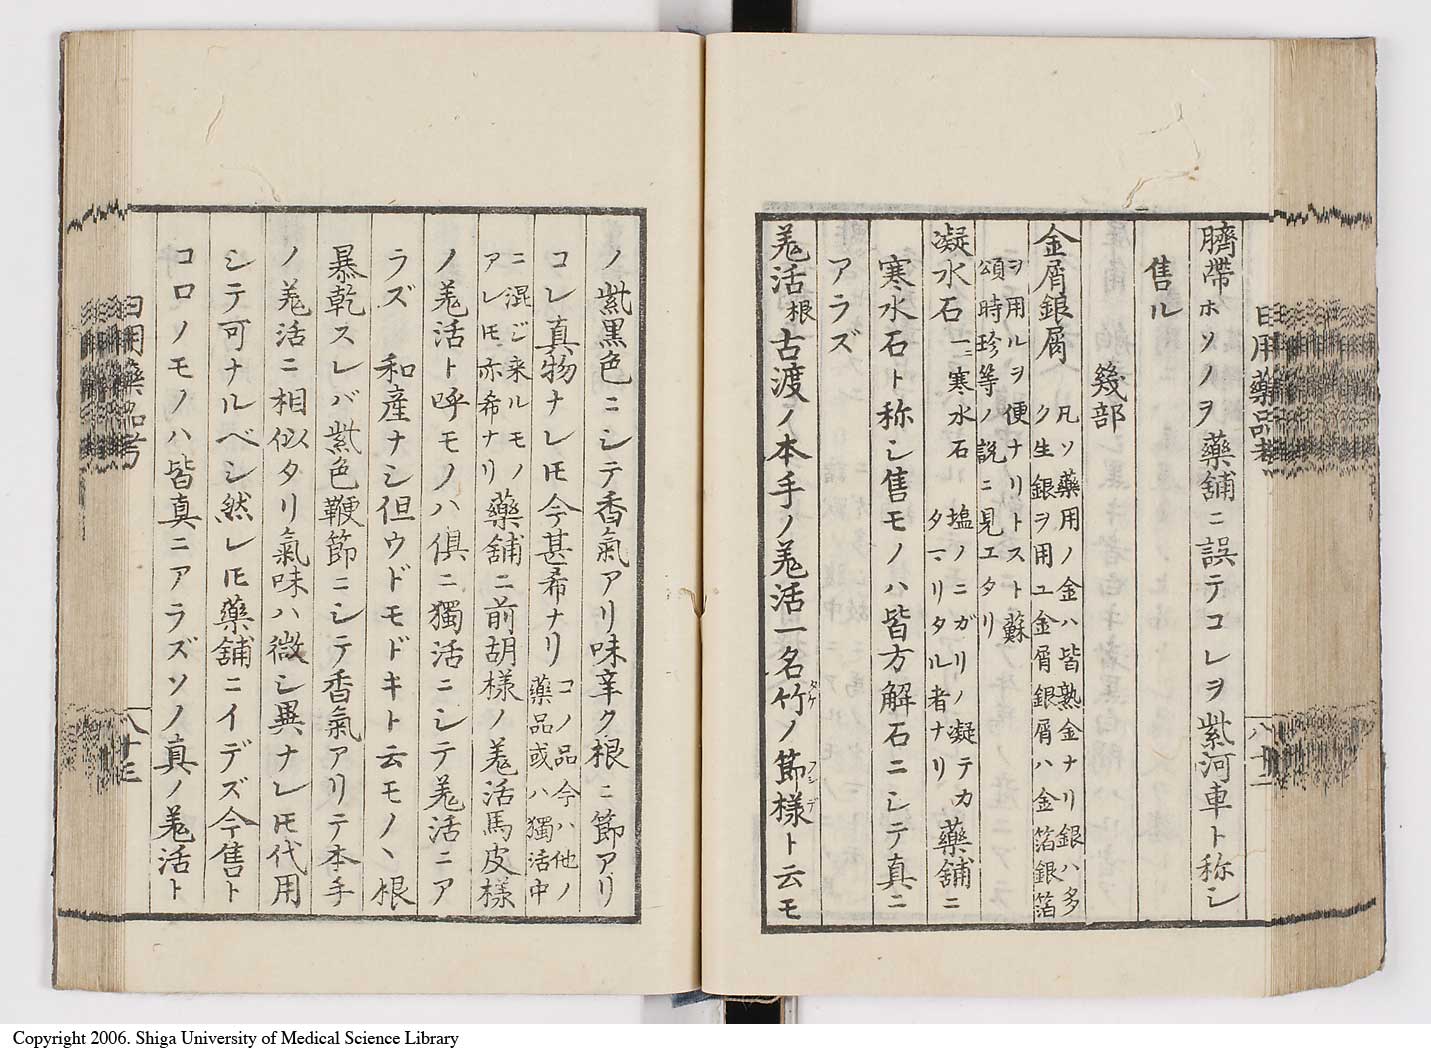 臍帶ホソノヲ藥舖ニ誤テコレヲ紫河車ト称シ
售ル
幾部
金屑銀屑 凡ソ藥用ノ金ハ皆熟金ナリ銀ハ多
ク生銀ヲ用ユ金屑銀屑ハ金箔銀箔
ヲ用ルヲ便ナリトスト蘇
頌時珍等ノ説ニ見エタリ
凝水石 一ニ寒水石 塩ノニガリノ凝テカ
タマリタル者ナリ 藥舖ニ
寒水石ト称シ售モノハ皆方解石ニシテ真ニ
アラズ
羗活根古渡ノ本手ノ羗活一名竹ノ節様ト云モ
タケ フシデ
日用藥品考
八十二
ノ紫黒色ニシテ香氣アリ味辛ク根ニ節アリ
コレ真物ナレ𪜈今甚希ナリ コノ品今ハ他ノ
藥品或ハ獨活中
ニ混ジ来ルモノ
アレ𪜈亦希ナリ 藥舖ニ前胡様ノ羗活馬皮様
ノ羗活ト呼モノハ俱ニ獨活ニシテ羗活ニア
ラズ 和産ナシ但ウドモドキト云モノヽ根
暴乾スレバ紫色鞕節ニシテ香氣アリテ本手
ノ羗活ニ相似タリ氣味ハ微シ異ナレ𪜈代用
シテ可ナルベシ然レ𪜈藥舖ニイデズ今售ト
コロノモノハ皆真ニアラズソノ真ノ羗活ト
日用藥品考
八十三
Copyright 2006. Shiga University of Medical Science Library